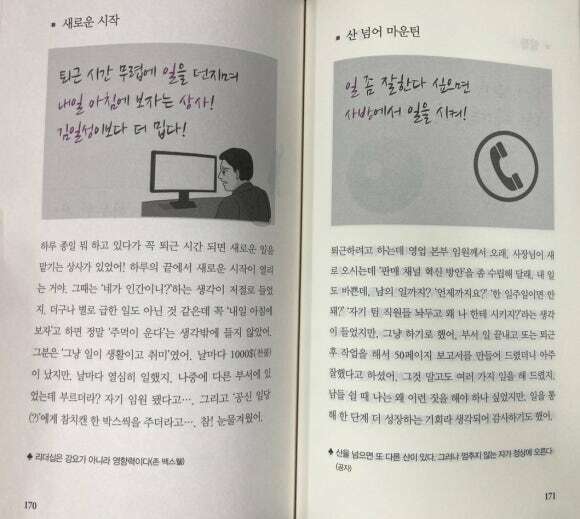 ▪ 새로운 시작
퇴근 시간 무렵에 일을 던지며
내일 아침에 보자는 상사!
김일성이보다 더 밉다!
하루 종일 뭐 하고 있다가 꼭 퇴근 시간 되면 새로운 일을
맡기는 상사가 있었어! 하루의 끝에서 새로운 시작이 열리
는 거야, 그때는 '네가 인간이니?'하는 생각이 저절로 들었
지. 더구나 별로 급한 일도 아닌 것 같은데 꼭 '내일 아침에
보자'고 하면 정말 '주먹이 운다'는 생각밖에 들지 않았어.
그분은 '그냥 일이 생활이고 취미'였어. 날마다 1000불(천불)
이 났지만, 날마다 열심히 일했지. 나중에 다른 부서에 있
었는데 부르더라? 자기 임원 됐다고…, 그리고 '공신 일당
(?)'에게 참치캔 한 박스씩을 주더라고…. 참! 눈물겨웠어.
♠ 리더십은 강요가 아니라 영향력이다(존 맥스웰)
170
▪ 산 넘어 마운틴
일 좀 잘한다 싶으면
사방에서 일을 시켜!
퇴근하려고 하는데 영업 본부 임원께서 오래, 사장님이 새
로 오시는데 '판매 채널 혁신 방안'을 좀 수립해 달래, 내 일
도 바쁜데, 남의 일까지? '언제까지요?' '한 일주일이면 안
돼?' '자기 팀 직원들 놔두고 왜 나 한테 시키지?'라는 생각
이 들었지만, 그냥 하기로 했어, 부서 일 끝내고 또는 퇴근
후 작업을 해서 50페이지 보고서를 만들어 드렸더니 아주
잘했다고 하셨어, 그것 말고도 여러 가지 일을 해 드렸지.
남들 쉴 때 나는 왜 이런 짓을 해야 하나 싶었지만, 일을 통
해 한 단계 더 성장하는 기회라 생각되어 감사하기도 했어.
♠ 산을 넘으면 또 다른 산이 있다. 그러나 멈추지 않는 자가 정상에 오른다
(공자)
171